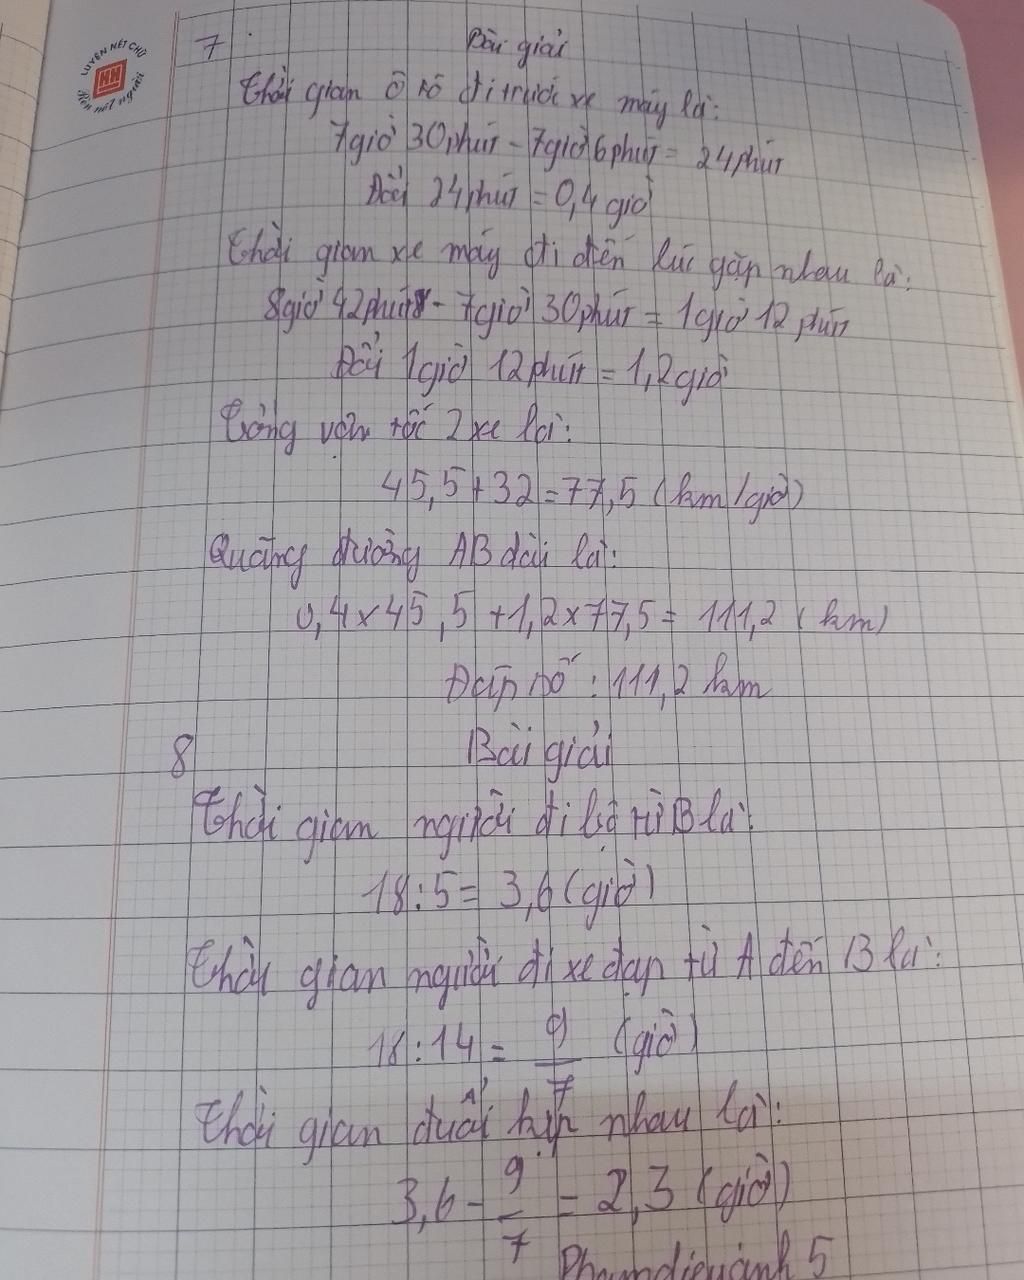 LUYỆN NÉT CHỮ
Rèn nết người
7
Bài giải
Thời gian ô tô đi trước xe máy là:
7giờ 30phút - 7giờ 6phút = 24phút
Đổi 24phút = 0,4 giờ
Thời gian xe máy đi đến lúc gặp nhau là:
8giờ 42phút - 7giờ 30phút = 1giờ 12 phút
Đổi 1giờ 12phút = 1,2giờ
Tổng vận tốc 2 xe là:
45,5+32=77,5 (km/giờ)
Quãng đường AB dài là:
0,4×45,5+1,2×77,5= 111,2 (km)
Đáp số: 111,2 km
8
Bài giải
Thời gian người đi bộ từ B là:
18:5= 3,6 (giờ)
Thời gian người đi xe đạp từ A đến B là:
18:14 = 9/7 (giờ)
Thời gian đuổi kịp nhau là:
3,6 - 9/7 = 2,3 (giờ)
5